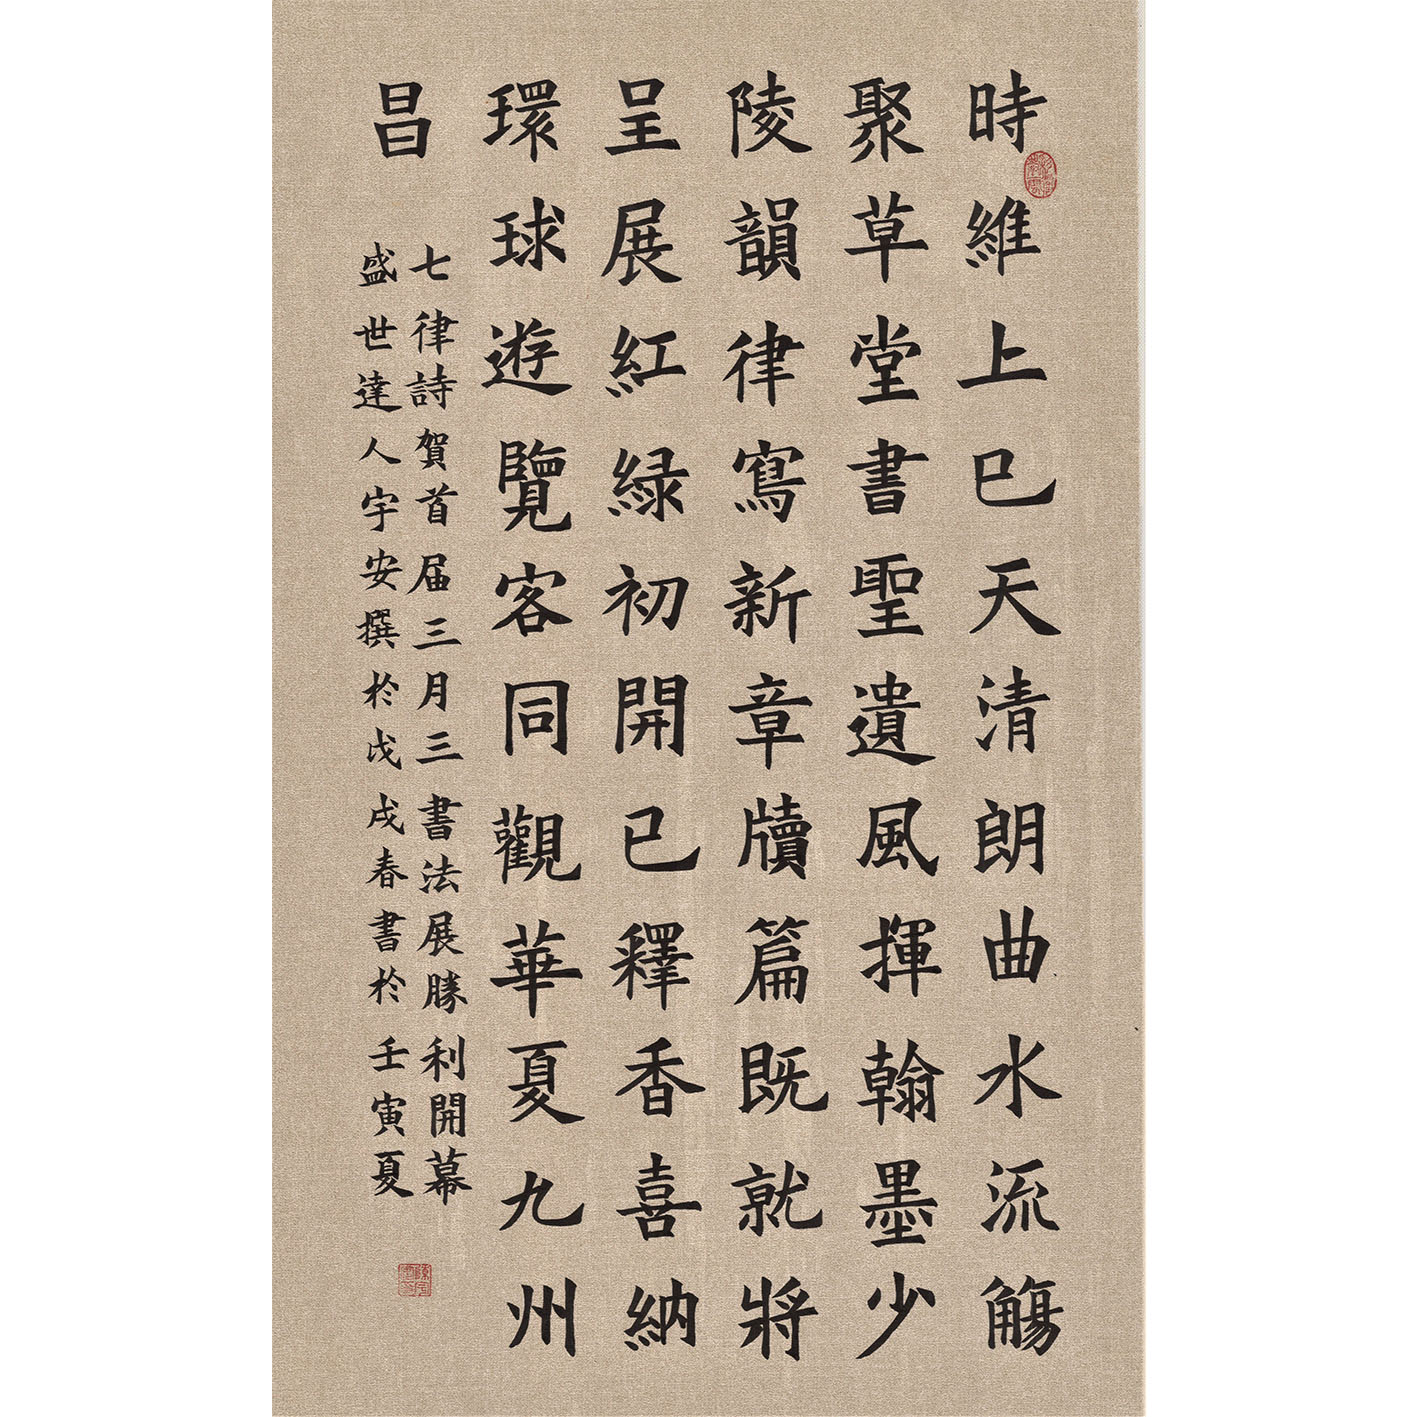 時維上巳天清朗曲水流觴
聚草堂書聖遺風揮翰墨少
陵韻律寫新章牘篇既就將
呈展紅緑初開已釋香喜納
環球遊覽客同觀華夏九州
昌
七律詩賀首届三月三書法展勝利開幕
盛世達人宇安撰於戊戌春書於壬寅夏